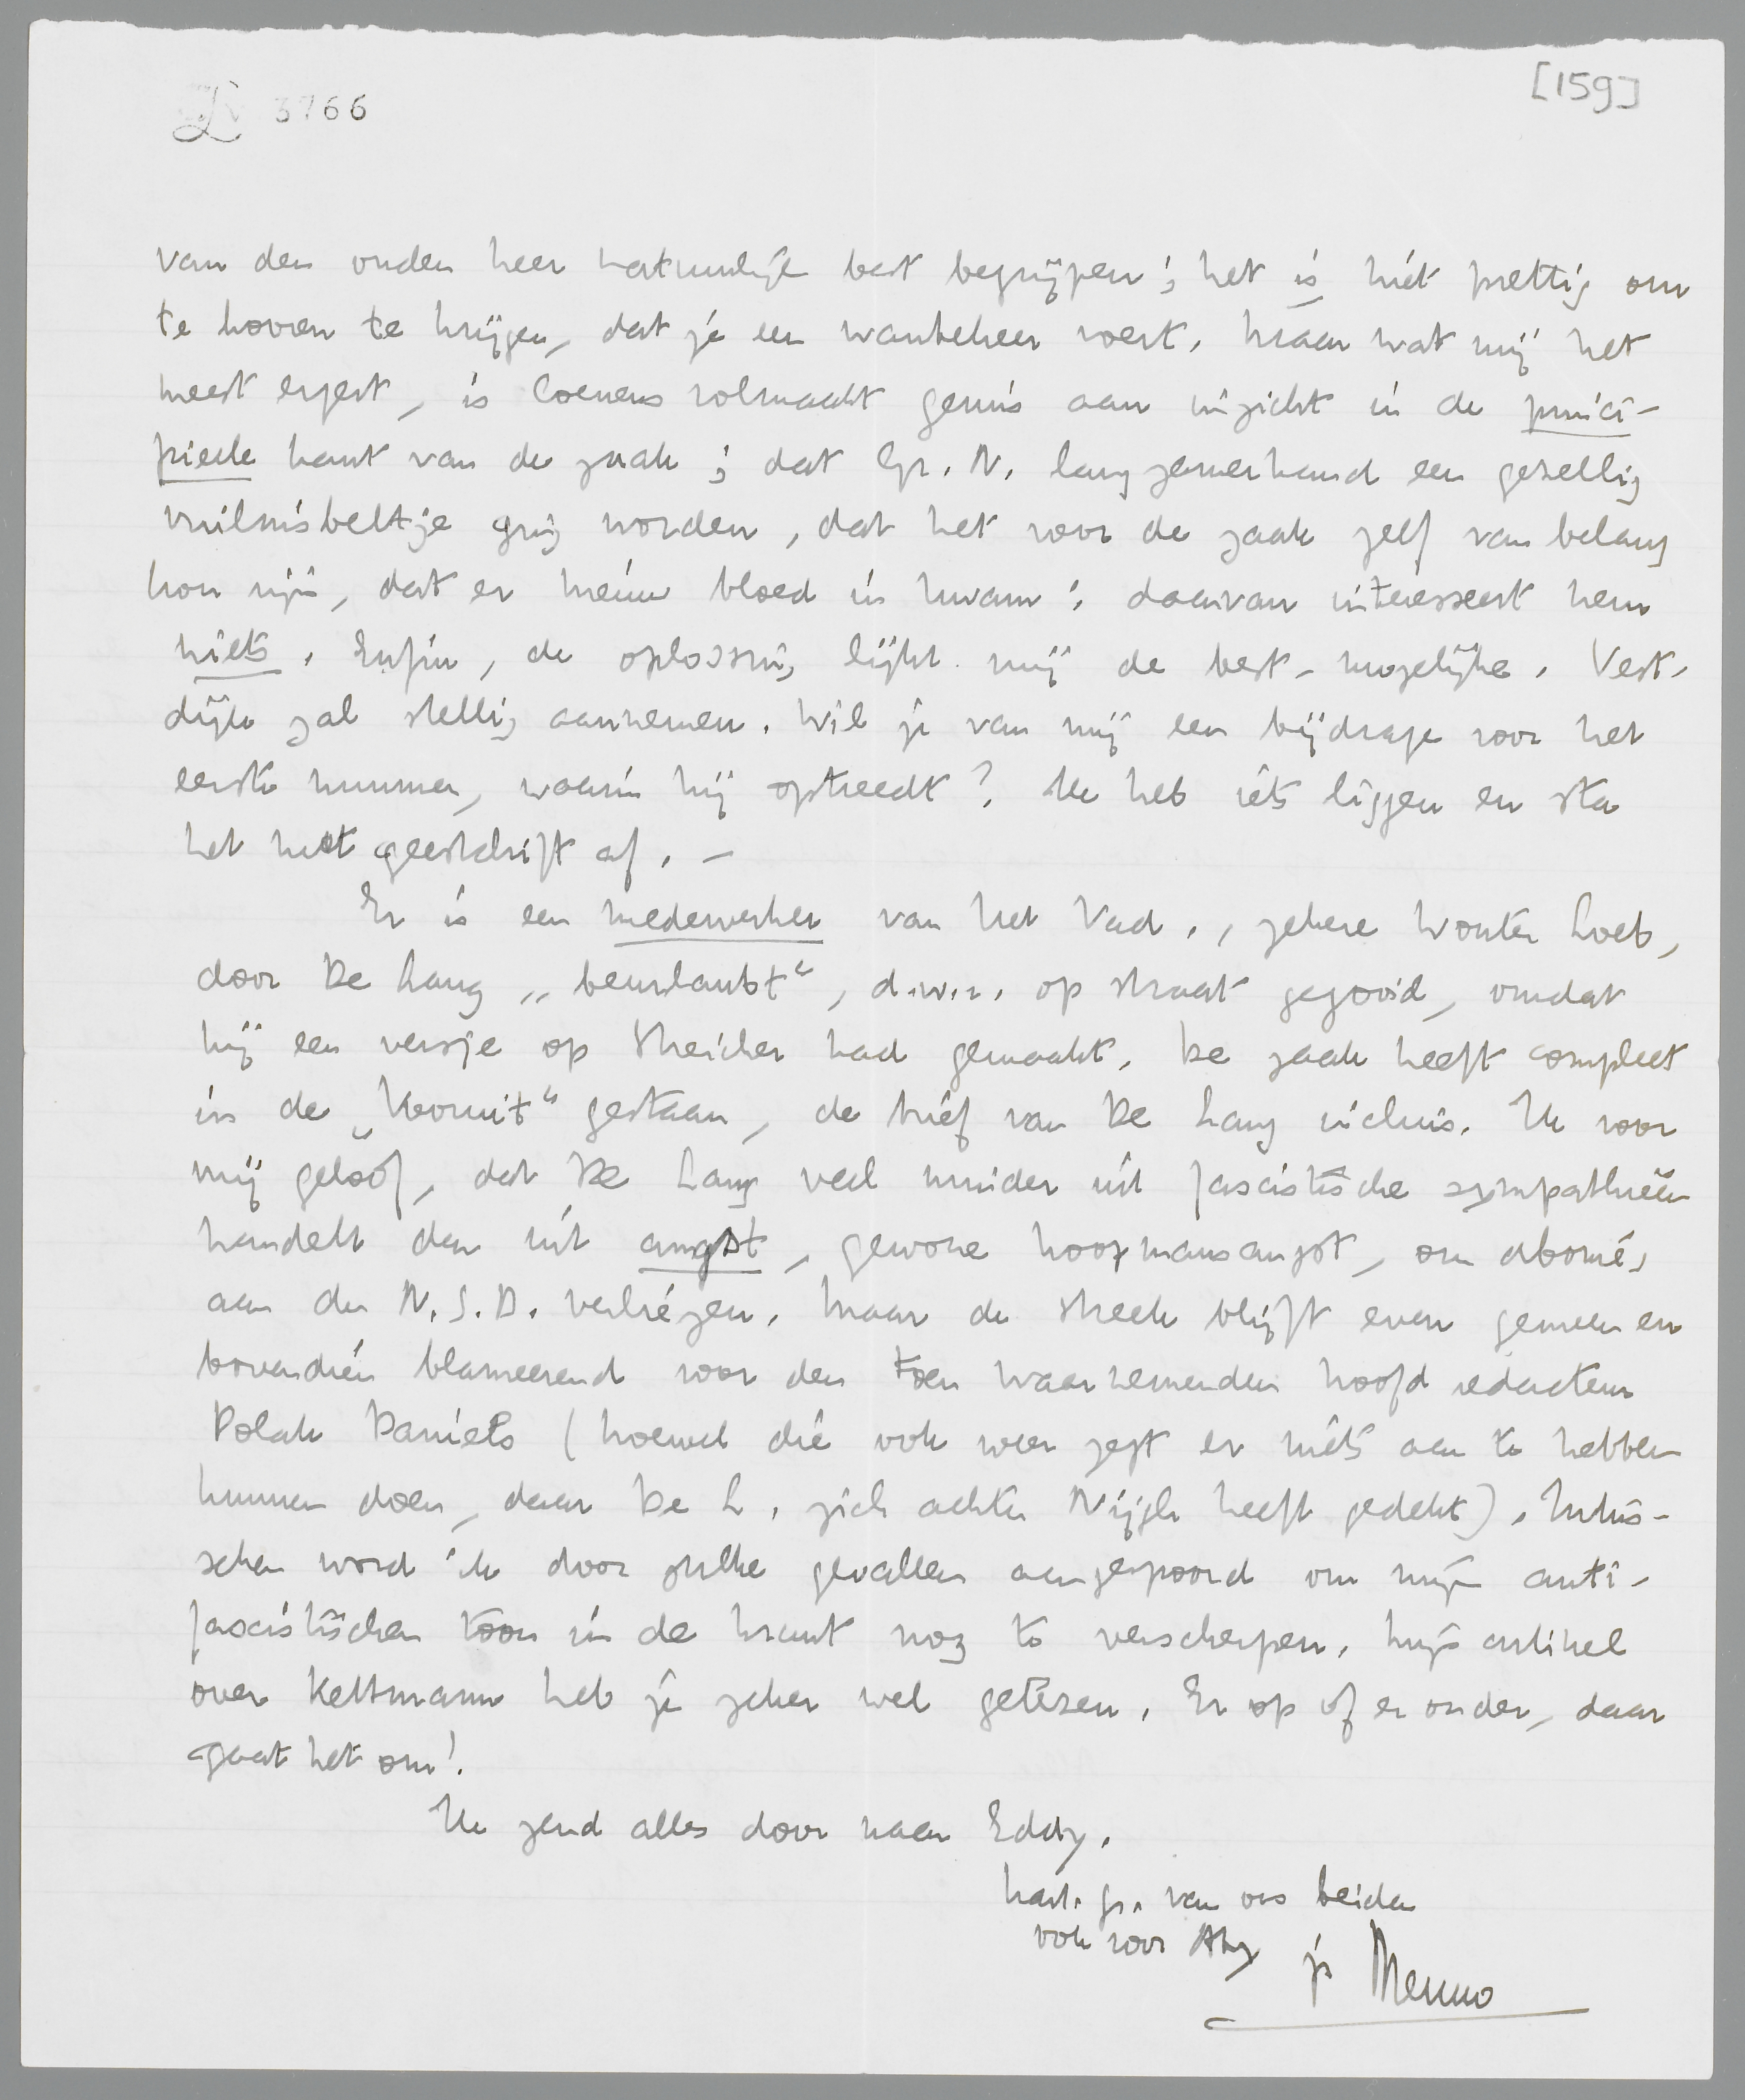 L 3766
[159]
van den ouden heer natuurlijk best begrijpen; het is niet prettig om
te hooren te krijgen, dat je een wanbeheer voert. Maar wat mij het
meest ergert, is Coenens volmaakt gemis aan inzicht in de princi-
pieele kant van de zaak; dat Gr. N. langzamerhand een gezellig
vuilnisbeltje ging worden, dat het voor de zaak zelf van belang
kon zijn, dat er nieuw bloed in kwam: daarvan interesseert hem
niets. Enfin, de oplossing lijkt mij de best-mogelijke. Vest-
dijk zal stellig aannemen. Wil je van mij een bijdrage voor het
eerste nummer, waarin hij optreedt? Ik heb iets liggen en sta
het met geestdrift af. –
Er is een medewerker van het Vad., zekere Wouter Loeb,
door De Lang „beurlaubt”, d.w.z. op straat gegooid, omdat
hij een versje op Streicher had gemaakt. De zaak heeft compleet
in de „Vooruit” gestaan, de brief van De Lang incluis. Ik voor
mij geloof, dat De Lang veel minder uit fascistische sympathieën
handelt dan uit angst, gewone koopmansangst, om abonné's
aan de N.S.B. verliezen. Maar de streek blijft even gemeen en
bovendien blameerend voor den toen waarnemenden hoofdredacteur
Polak Daniels (hoewel die ook weer zegt er niets aan te hebben
kunnen doen, daar De L. zich achter Nijgh heeft gedekt). Intus-
schen word ik door zulke gevallen aangespoord om mijn anti-
fascistischen toon in de krant nog te verscherpen. Mijn artikel
over Kettmann heb je zeker wel gelezen. Er op of er onder, daar
gaat het om!
Ik zend alles door naar Eddy.
hart. gr. van ons beiden
ook voor Atty je Menno